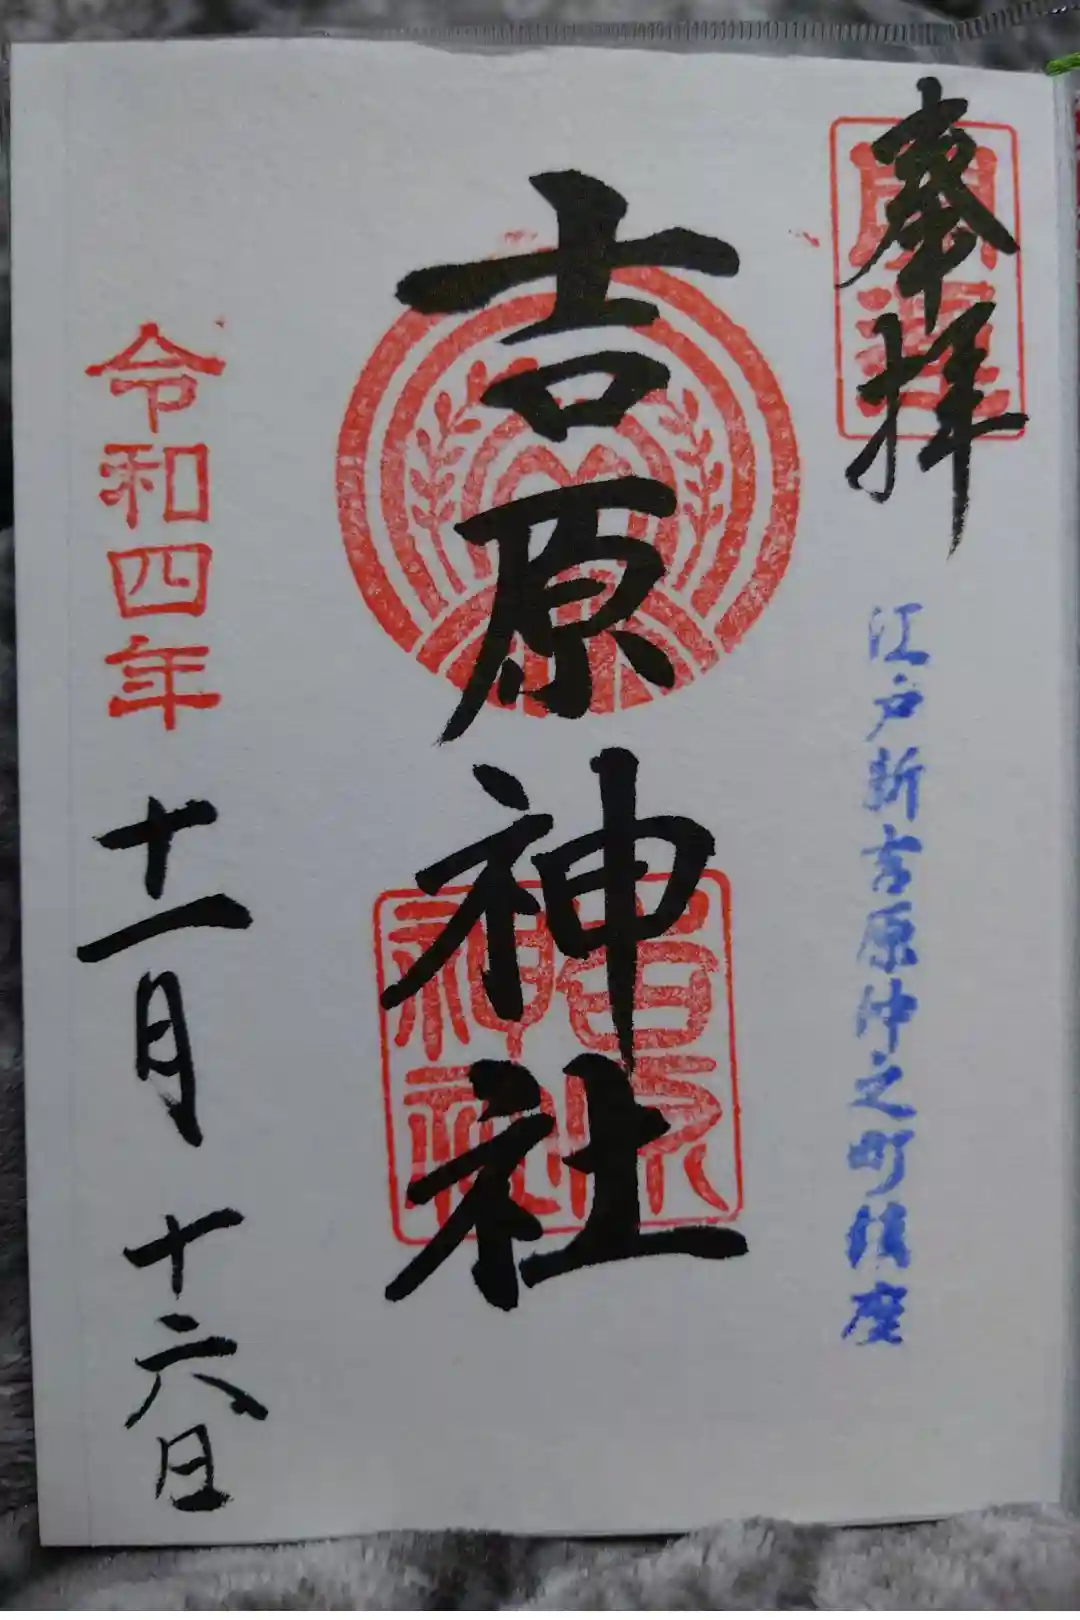 奉拝
開運
江戸新吉原仲之町鎮座
吉原神社
吉原
神社
令和四年
十一月
十六日